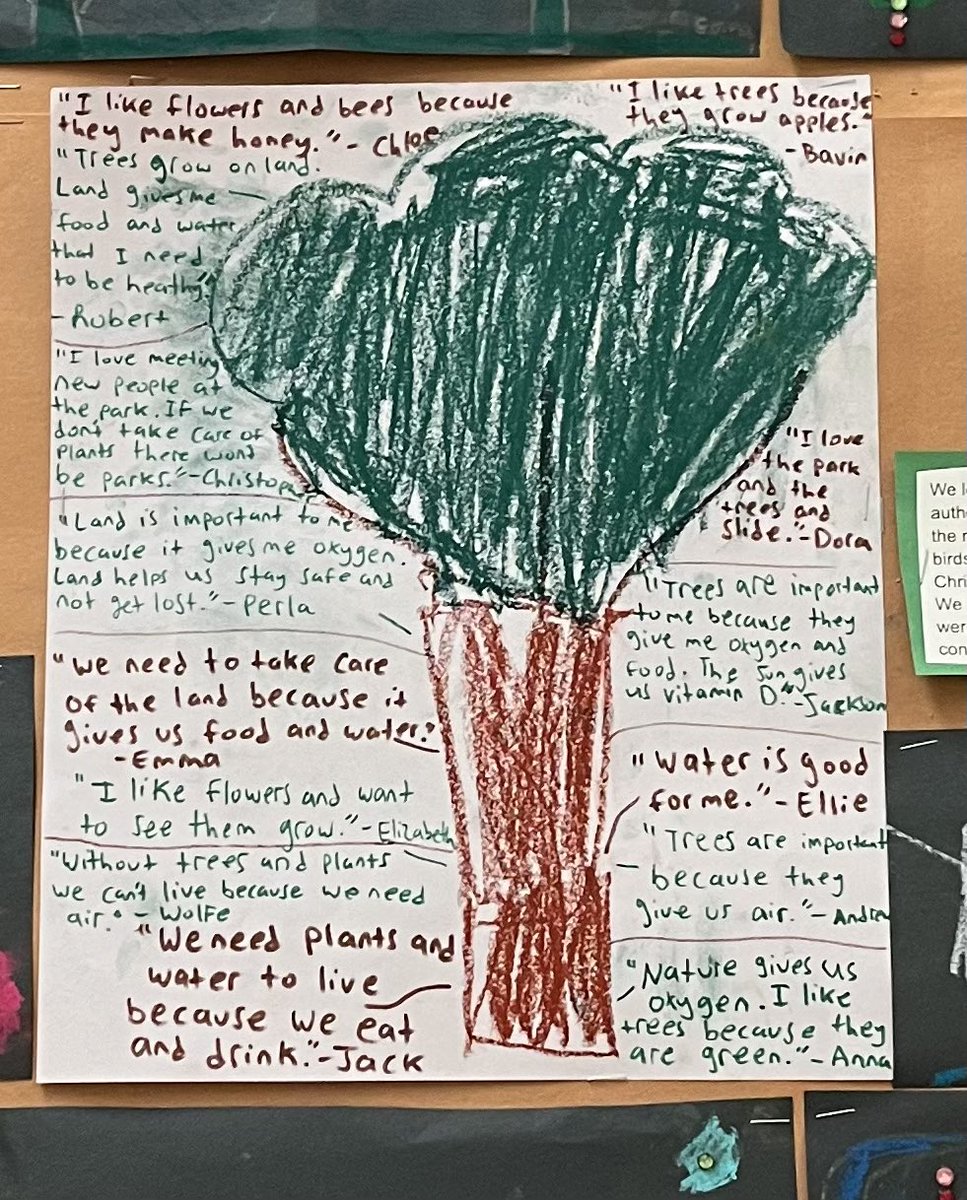 "I like flowers and bees because
they make honey."- Chloe
"Trees grow on land.
Land gives me
food and water
that I need
to be healthy"
- Robert
"I love meeting
new people at
the park. If we
don't take care of
plants there wont
be parks."-Christoph
"Land is important to me
because it gives me oxygen.
Land helps us stay safe and
not get lost."-Perla
"we need to take care
of the land because it
gives us food and water."
-Emma
"I like flowers and want
to see them grow."-Elizabeth
"Without trees and plants
we can't live because we need
air." - Wolfe
"We need plants and
water to live
because we eat
and drink."-Jack
"I like trees because
they grow apples."
-Bavin
"I love
the park
and the
trees and
slide."-Dora
"Trees are important
to me because they
give me oxygen and
food. The sun gives
us vitamin D."-Jackson
"Water is good
for me."-Ellie
"Trees are important
because they
give us air."-Andrew
"Nature gives us
oxygen. I like
trees because they
are green."-Anna
We
auth
the
birds
Chri
We
wer
con